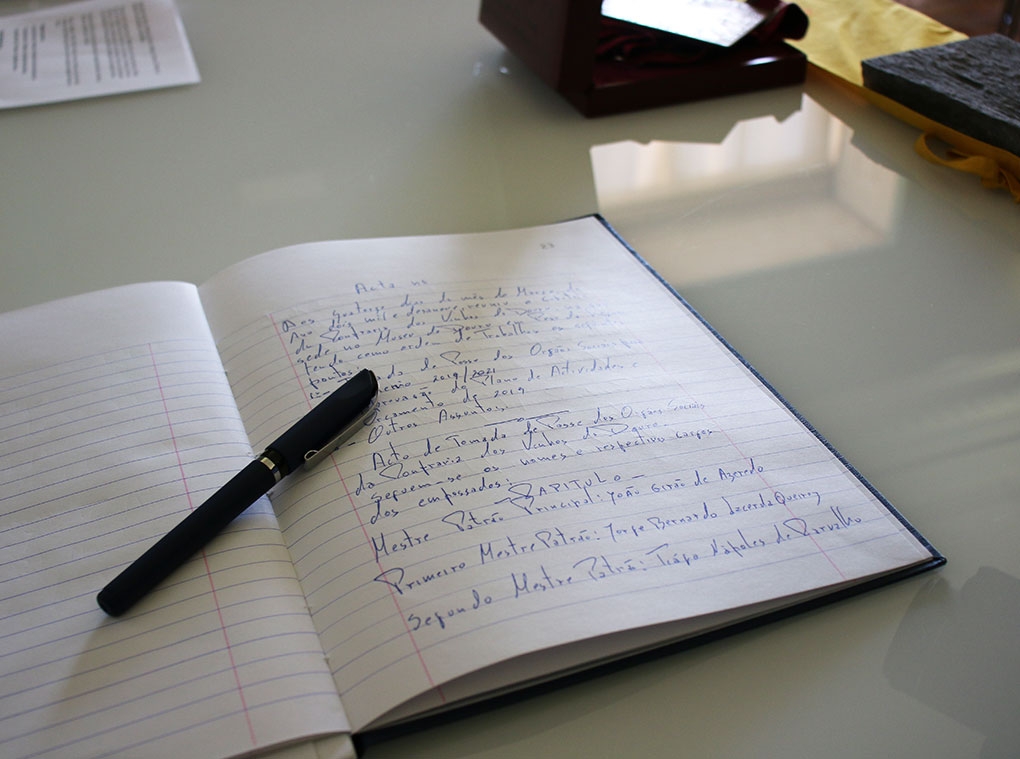 23
Acta nº
Aos quatorze dias do mês de Março do
Ano dois mil e desanove, reuniu a
da Confraria dos Vinhos do
sede, no Museu do Douro
tendo como ordem de Trabalhos os
pontos:
de Posse dos Orgãos Sociais para
2019/2021
do Plano de Atividades e
Orçamento de 2019
- Outros Assuntos.
Acto de Tomada de Posse dos Orgãos Sociais
da Confraria dos Vinhos do Douro.
Seguem-se os nomes e respectivos cargos
dos empossados:
- CAPITULO -
Mestre Patrão Principal: João Girão de Azeredo
Primeiro Mestre Patrão: Jorge Bernardo Lacerda Queiroz
Segundo Mestre Patrão: Nápoles de Carvalho